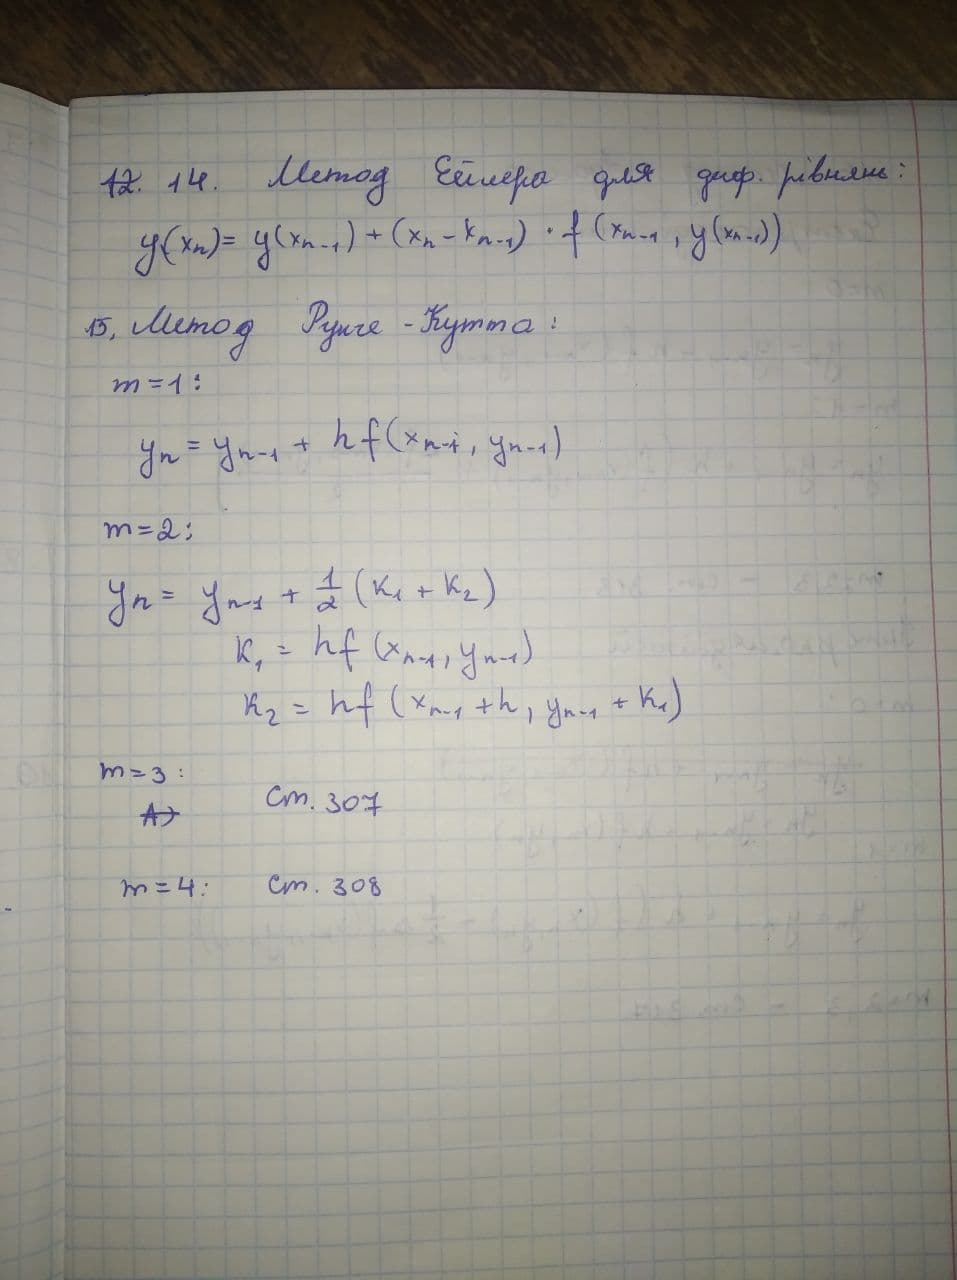 14. Метод Ейлера для диф. рівнянь:
y(xₙ) = y(xₙ₋₁) + (xₙ - xₙ₋₁) · f(xₙ₋₁, y(xₙ₋₁))
15. Метод Рунге-Кутта:
m=1:
yₙ = yₙ₋₁ + hf(xₙ₋₁, yₙ₋₁)
m=2:
yₙ = yₙ₋₁ + 1/2 (K₁ + K₂)
K₁ = hf(xₙ₋₁, yₙ₋₁)
K₂ = hf(xₙ₋₁ + h, yₙ₋₁ + K₁)
m=3:
Ст. 307
m=4: Ст. 308